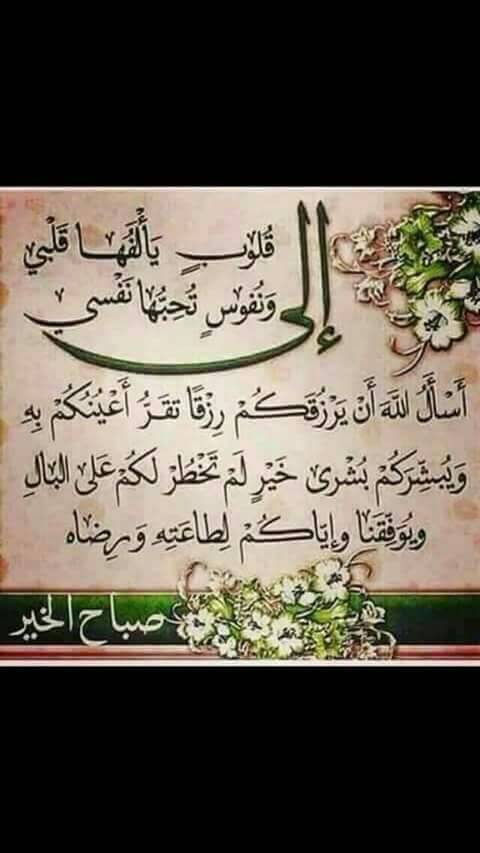 إلى قُلوبٍ يَأْلَفُهَا قَلْبي
وَنُفوسٍ تُحِبُّها نَفْسي
أَسْأَلُ اللهَ أَنْ يَرْزُقَكُمْ رِزْقًا تقَرُّ أَعْيُنُكُمْ بِهِ
وَيُبشِّرَكُمْ بُشْرىٰ خَيْرٍ لَمْ تَخْطُرْ لكُمْ عَلى البَالِ
ويُوَفِّقَنا وإيّاكُمْ لِطاعَتِهِ وَرِضاه
صباح الخير